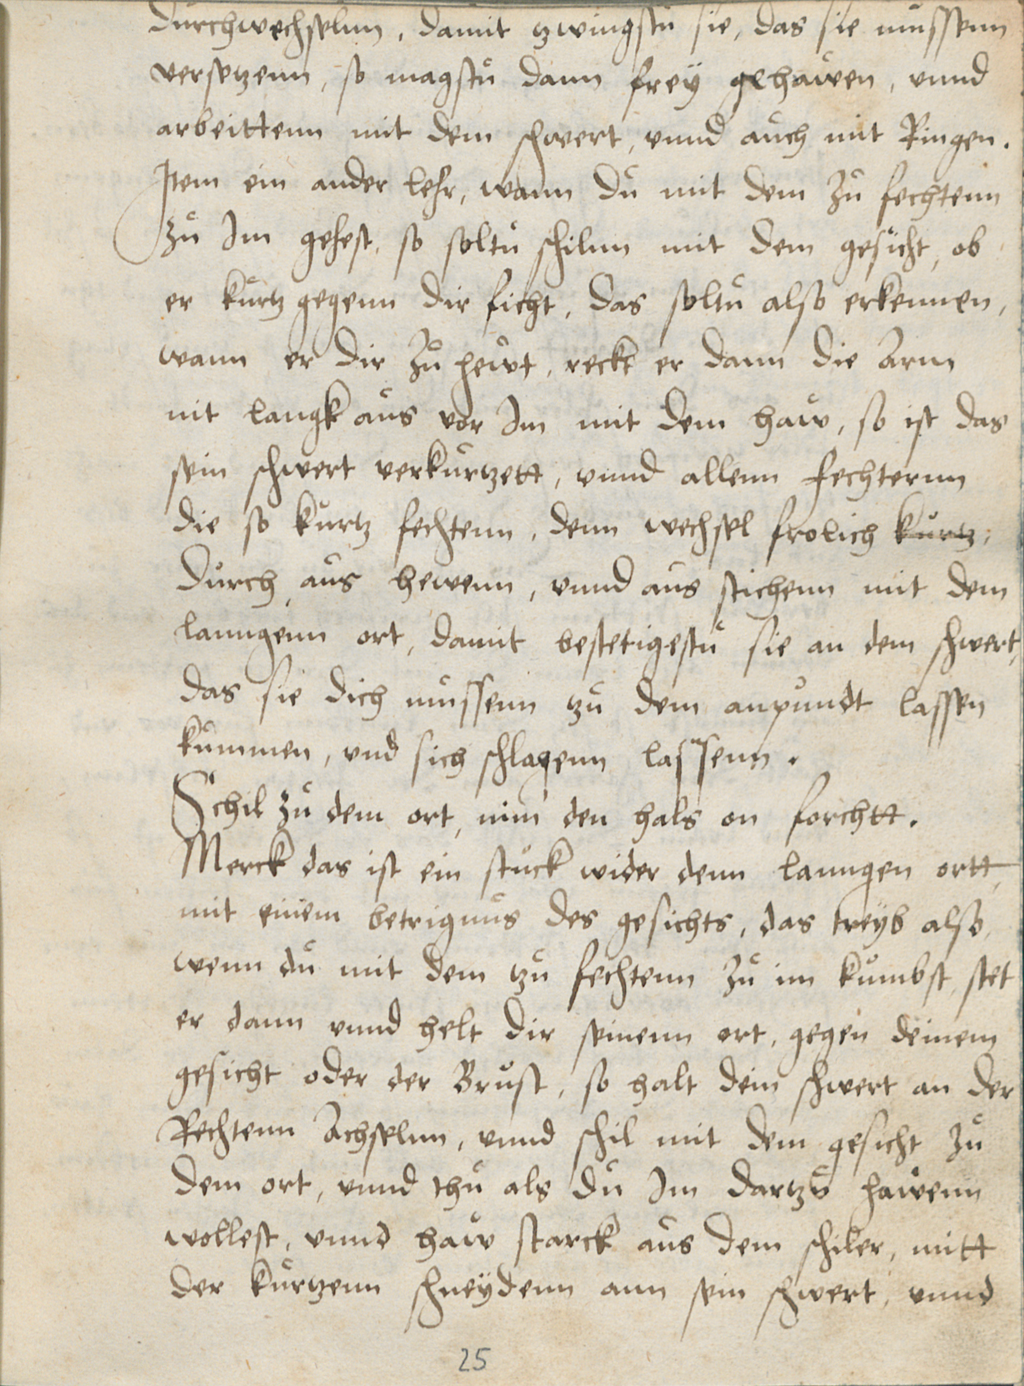 durchwechselnn, damit zwingstu sie, das sie mussenn
versetzenn, so magstu dann freÿ gehawen, vnnd
arbeittenn mit dem schwert, vnnd auch mit Ringen.
Item ein ander lehr, wann du mit dem zu fechtenn
zu Im gehest, so soltu schilnn mit dem gesicht, ob
er kurtz gegenn dir ficht, das soltu also erkennen,
wann er dir zu hewt, reckt er dann die Arm
nit langk aus vor Im mit dem haw, so ist das
sein schwert verkurtzett, vnnd allenn fechternn
die so kurtz fechtenn, denn wechsel frolich kurtz,
durch, aus hewenn, vnnd aus stichenn mit dem
lanngenn ort, damit bestetigestu sie an dem schwert,
das sie dich mussenn zu dem anpundt lassen
kummen, vnd sich schlagenn lassenn.
Schil zu dem ort, nim den hals on forchtt.
Merck das ist ein stuck wider denn lanngen ortt,
mit einem betrignus des gesichts, das treÿb also,
wenn du mit dem zu fechtenn zu im kumbst, stet
er dann vnnd helt dir seinenn ort, gegen deinem
gesicht oder der Brust, so halt dein schwert an der
Rechtenn Achselnn, vnnd schil mit dem gesicht zu
dem ort, vnnd thu als du Im dartzu hawenn
wollest, vnnd haw starck aus dem schiler, mitt
der kurtzenn schneÿdenn ann sein schwert, vnnd
25